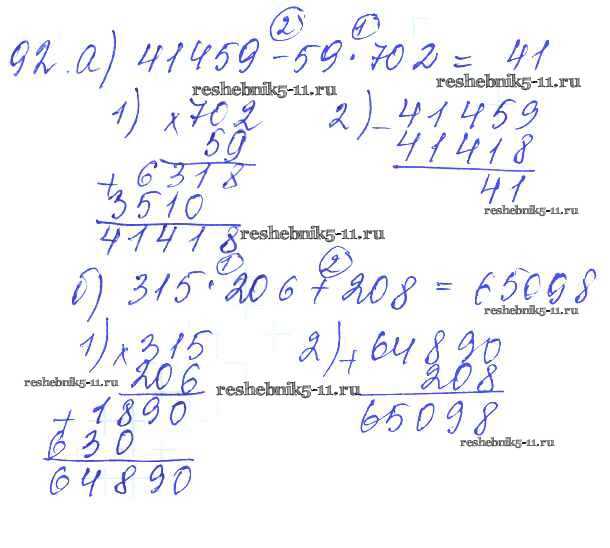 92. а) 41459 - 59 · 702 = 41
② ①
reshebnik5-11.ru
1) × 702
59
+ 6318
3510
41418
2) - 41459
41418
41
reshebnik5-11.ru
reshebnik5-11.ru
б) 315 · 206 + 208 = 65098
① ②
reshebnik5-11.ru
1) × 315
206
+ 1890
630
64890
2) + 64890
208
65098
reshebnik5-11.ru
reshebnik5-11.ru
reshebnik5-11.ru